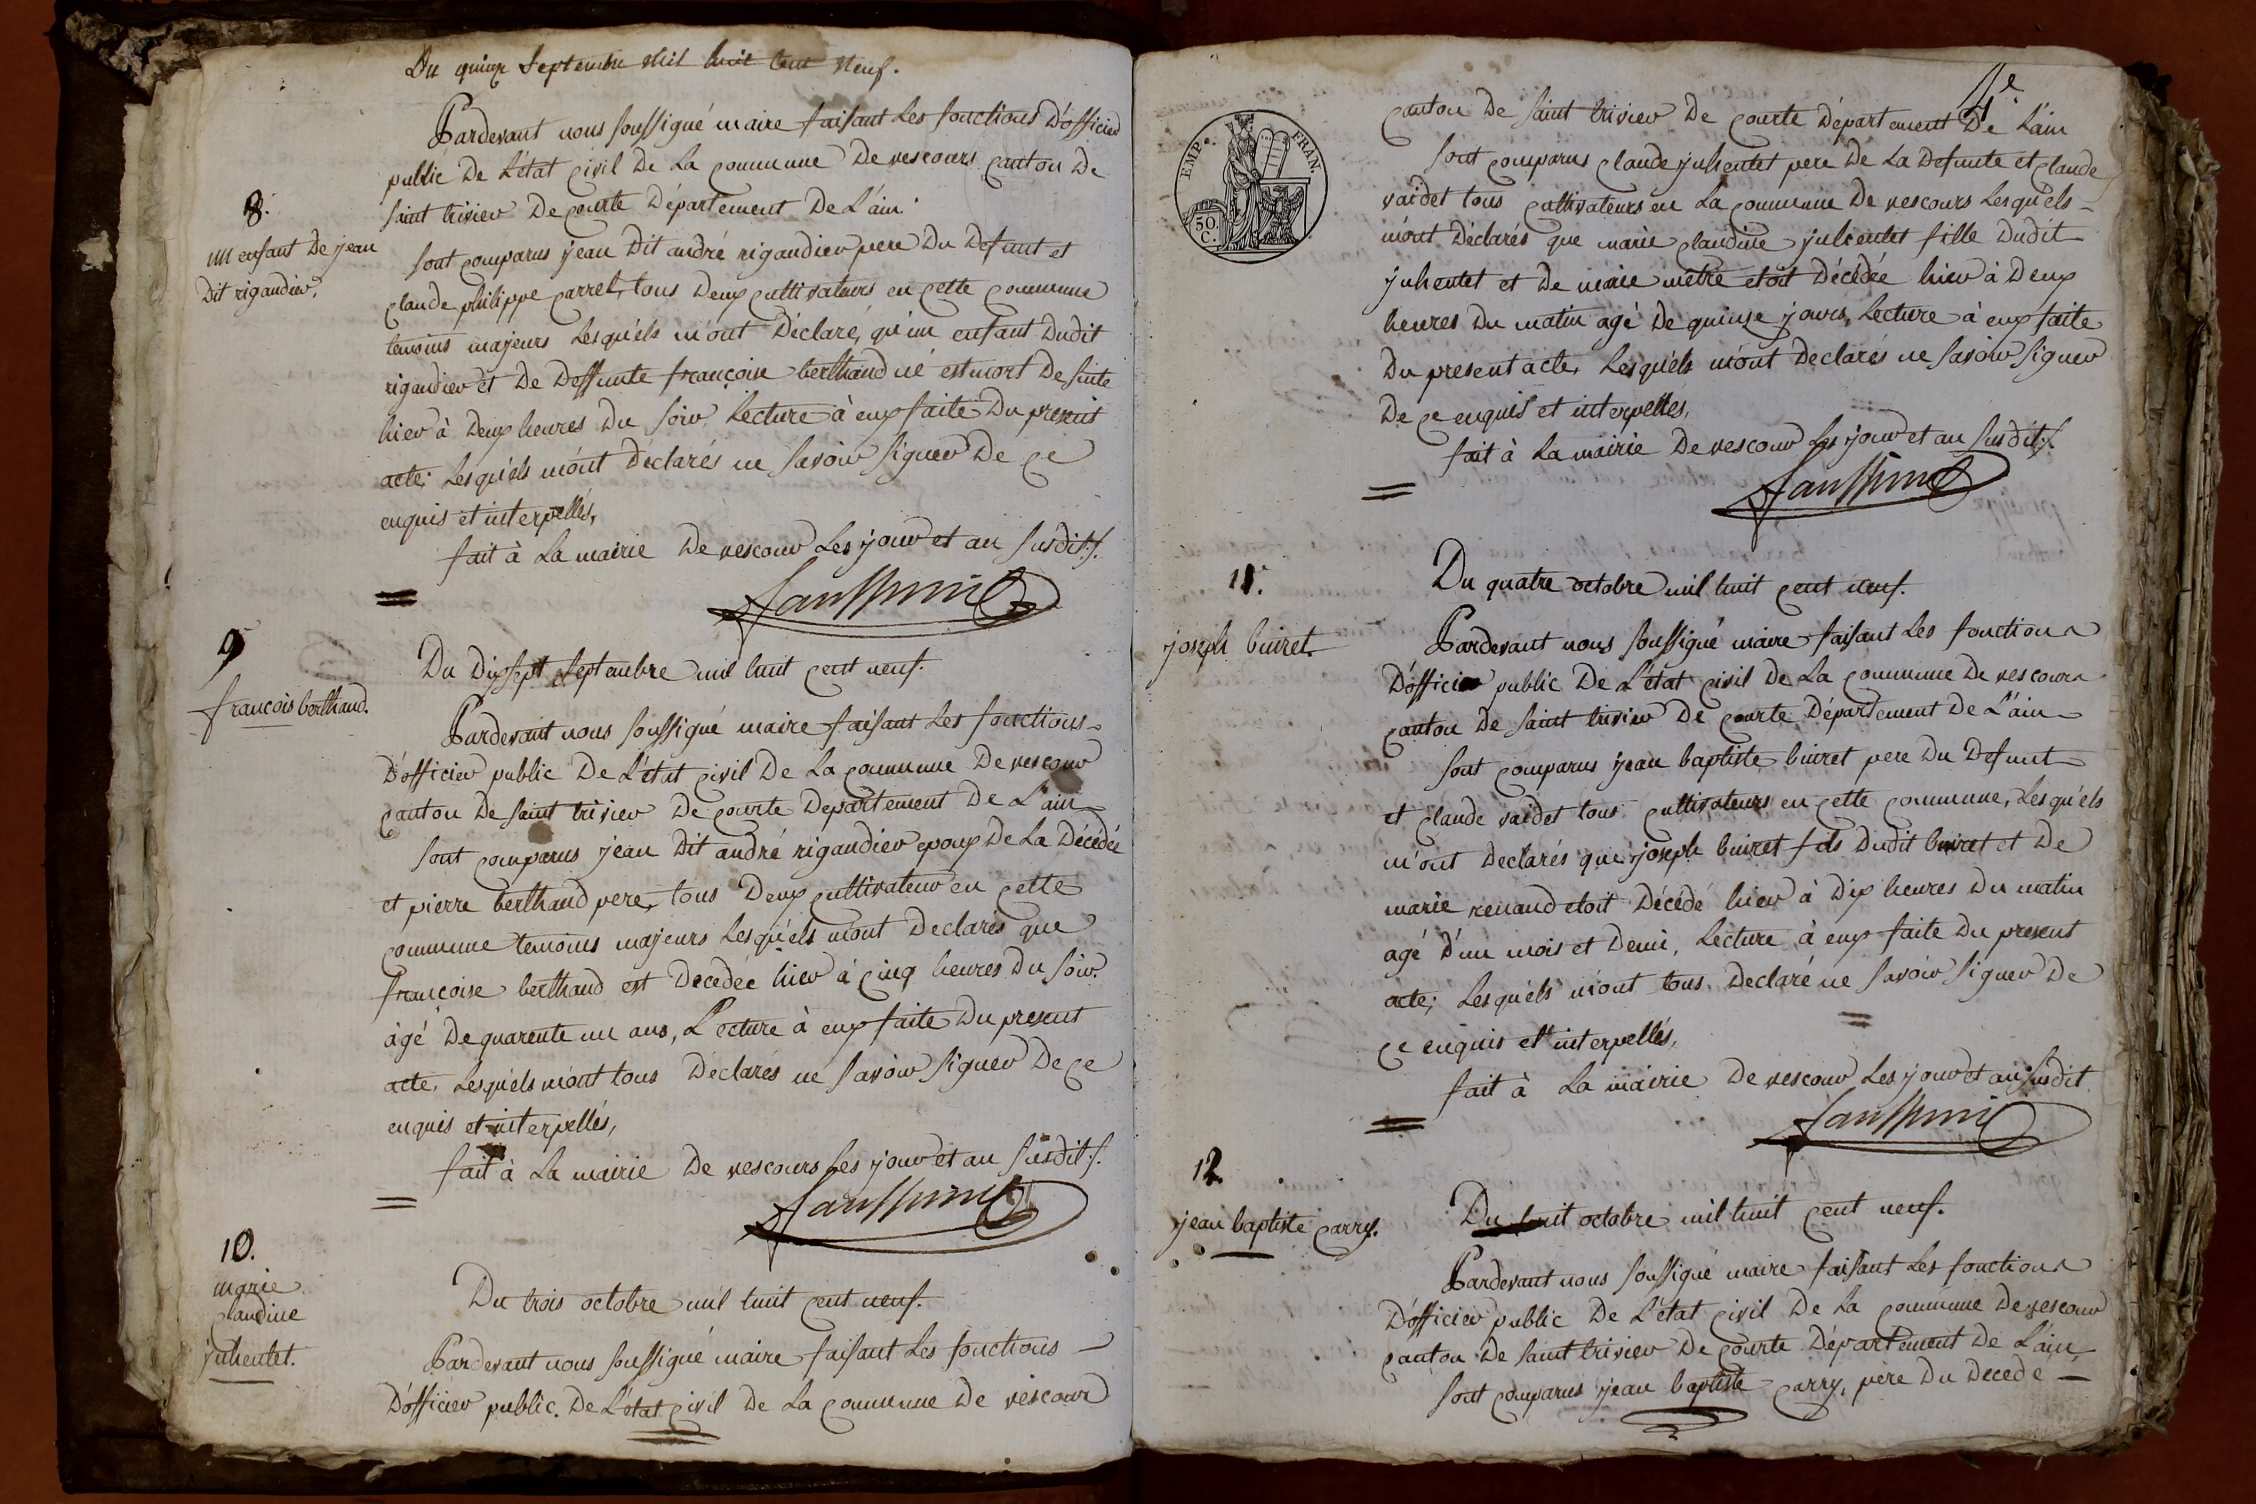 Du quinze Septembre mil huit cent neuf.
8.
un enfant de jean
dit rigaudier.
Pardevant nous soussigné maire faisant les fonctions d'officier
public de L'état civil de La commune de vescours canton de
saint trivier de courte département de L'ain.
sont comparus jean dit andré rigaudier pere du defunt et
claude philippe carrel, tous deux cultivateurs en cette commune
temoins majeurs Lesqu'els m'ont déclaré, qu'un enfant dudit
rigaudier et de deffunte françoise berthaud né est mort de suite
hier à deux heures du soir, Lecture à eux faite du present
acte; Lesqu'els m'ont déclarés ne savoir signer de ce
enquis et interpellés,
fait à La mairie de vescour Les jour et an susdits.
9
francois berthaud.
Du dix sept septembre mil huit cent neuf.
Pardevant nous soussigné maire faisant Les fonctions
d'officier public de L'état civil de La commune de vescour
canton de saint trivier de courte departement de L'ain
sont comparus jean dit andré rigaudier epoux de La décédée
et pierre berthaud pere, tous deux cultivateur en cette
commune temoins majeurs Lesqu'els m'ont declarés que
françoise berthaud est decedée hier à cinq heures du soir.
âgé de quarente un ans, Lecture à eux faite du present
acte, Lesqu'els m'ont tous déclarés ne savoir signer de ce
enquis et interpellés,
fait à La mairie de vescours Les jour et an susdits.
10.
marie
claudine
juhentet.
Du trois octobre mil huit cent neuf.
Pardevant nous soussigné maire faisant Les fonctions
d'officier public. de L'état civil de La commune de vescour
EMP. FRAN.
50.
C.
canton de saint trivier de courte département de L'ain
sont comparus claude juhentet pere de La defunte et claude
vaidet tous cultivateurs en La commune de vescours Lesqu'els
m'ont déclarés que marie claudine juhentet fille dudit
juhentet et de marie metre etoit décédée hier à deux
heures du matin agé de quinse jours, Lecture à eux faite
du present acte, Lesqu'els m'ont declarés ne savoir signer
de ce enquis et interpelles,
fait à La mairie de vescour Les jour et an susdits.
11.
joseph buiret.
Du quatre octobre mil huit cent neuf.
Pardevant nous soussigné maire faisant Les fonctions
d'officier public de L'état civil de La commune de vescours
canton de saint trivier de courte département de L'ain
sont comparus jean baptiste buiret pere du defunt
et claude vaidet tous cultivateurs en cette commune, Lesqu'els
m'ont declarés que joseph buiret fils dudit buiret et de
marie renaud etoit décédé hier à dix heures du matin
agé d'un mois et demi, Lecture à eux faite du present
acte; Lesqu'els m'ont tous declaré ne savoir signer de
ce enquis et interpellés,
fait à La mairie de vescour Les jour et an susdit
12.
jean baptiste carry.
Du huit octobre mil huit cent neuf.
Pardevant nous soussigné maire faisant Les fonctions
d'officier public de L'état civil de La commune de vescour
canton de saint trivier de courte département de L'ain
sont comparus jean baptiste carry, père du decede